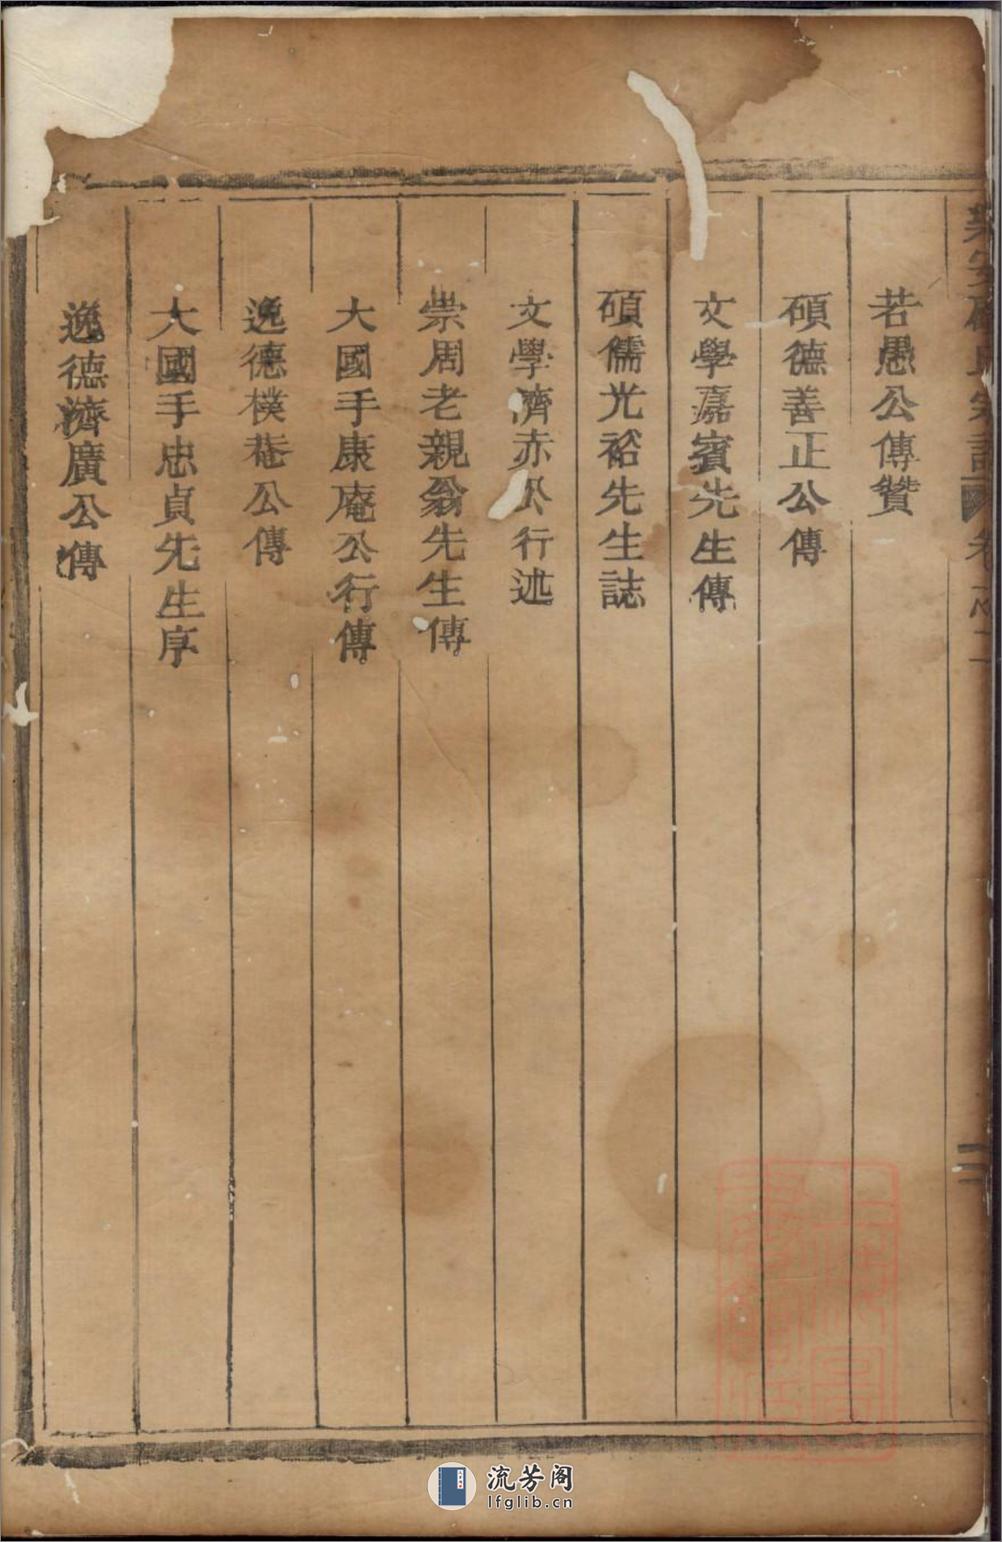 若愚公傳贊
碩德善正公傳
文學嘉賓先生傳
碩儒光裕先生誌
文學濟赤公行述
崇周老親翁先生傳
大國手康庵公行傳
逸德樸菴公傳
大國手忠貞先生序
逸德濟廣公傳
卷之
二
上海圖書館藏
流芳阁
lfglib.cn